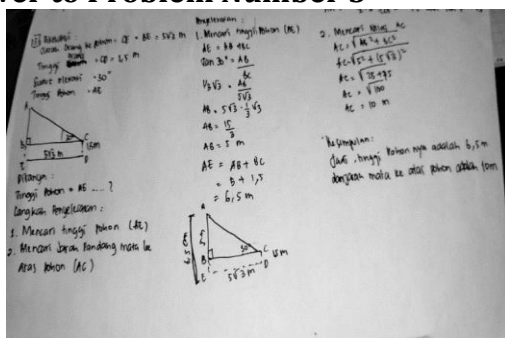 Jarak orang ke pohon = CB = DE = 5√3 m
Tinggi orang = CD = 1,5 m
Sudut elevasi = 30°
Tinggi Pohon = AE
A
B
C
1,5m
5√3 m
E
D
Ditanya :
Tinggi pohon = AE .... ?
Langkah Penyelesaian :
1. Mencari tinggi pohon (AE)
2. Mencari Jarak Pandang mata ke
atas pohon (AC)
Penyelesaian :
1. Mencari tinggi pohon (AE)
AE = AB + BC
tan 30° = AB
BC
1/3 √3 = AB
5√3
AB = 5√3 . 1/3 √3
AB = 15
3
AB = 5 m
AE = AB + BC
= 5 + 1,5
= 6,5 m
A
6,5 m
B
30°
C
D
E
5√3 m
2. Mencari AC
AC = √AB² + BC²
AC = √5² + (5√3)²
AC = √25 + 75
AC = √100
AC = 10 m
Kesimpulan :
Jadi, tinggi pohon nya adalah 6,5 m
dan jarak mata ke atas pohon adalah 10m